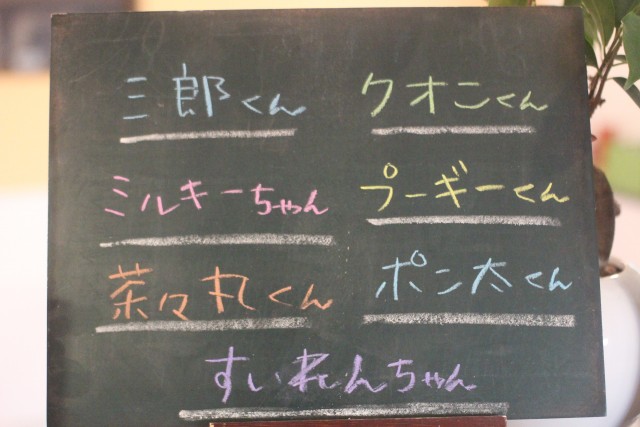 三郎くん クオンくん
ミルキーちゃん プーギーくん
茶々丸くん ポン太くん
すいれんちゃん